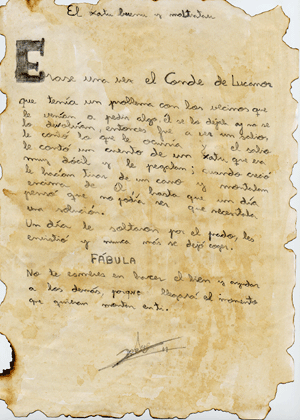 El xatu bueno y maltratau
Erase una vez el Conde de Lucanor
que tenía un problema con los vecinos que
le venían a pedir algo él se lo dejaba y no se
lo devolvían, entonces fue a ver un sabio
le contó lo que le ocurría y el sabio
le contó un cuento de un xatu que era
muy dócil y le pegaban; cuando creció
le hacían tirar de un carro y montaban
encima de él, hasta que un día
pensó que no podía ser que necesitaba
una solución.
Un día le soltaron por el prado, les
envistió y nunca más se dejó coger.
FABULA
No te confíes en hacer el bien y ayudar
a los demás, porque llegará el momento
que quieran montar en ti.